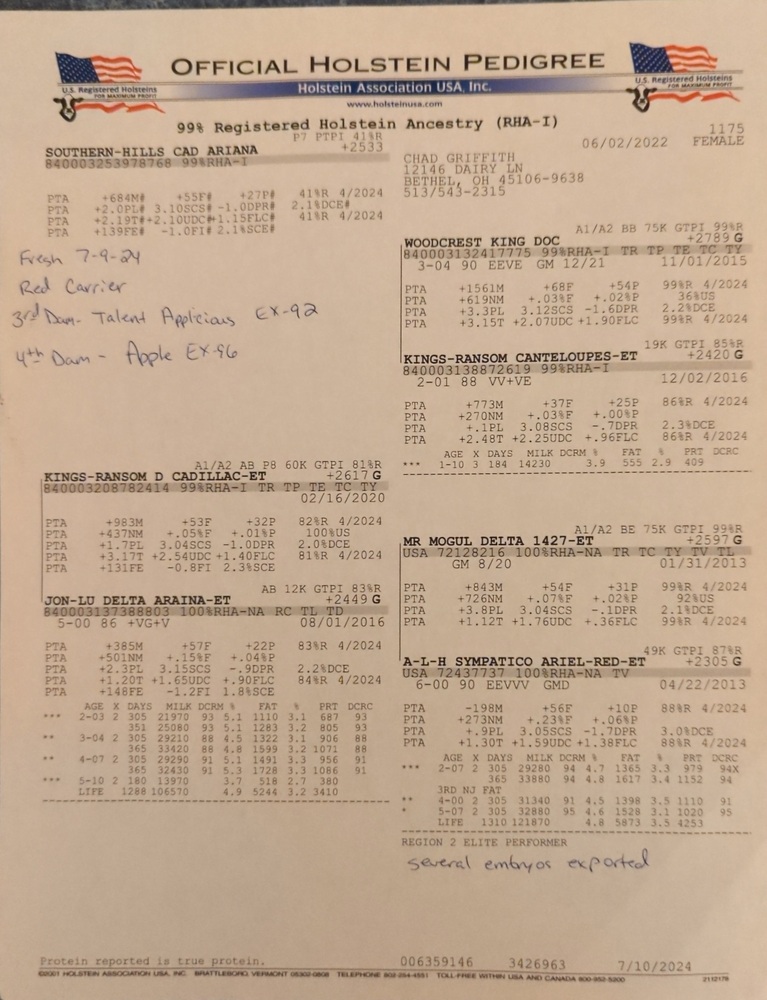 OFFICIAL HOLSTEIN PEDIGREE
Holstein Association USA, Inc.
www.holsteinusa.com
U.S. Registered Holsteins
FOR MAXIMUM PROFIT
U.S. Registered Holsteins
FOR MAXIMUM PROFIT
99% Registered Holstein Ancestry (RHA-I)
P7 PTPI 41%R
SOUTHERN-HILLS CAD ARIANA +2533
840003253978768 99%RHA-I
06/02/2022
1175
FEMALE
CHAD GRIFFITH
12146 DAIRY LN
BETHEL, OH 45106-9638
513/543-2315
PTA +684M# +55F# +27P# 41%R 4/2024
PTA +2.0PL# 3.10SCS# -1.0DPR# 2.1%DCE#
PTA +2.19T#+2.10UDC#+1.15FLC# 41%R 4/2024
PTA +139FE# -1.0FI# 2.1%SCE#
Fresh 7-9-24
Red Carrier
3rd Dam- Talent Applicious EX-92
4th Dam - Apple EX-96
A1/A2 BB 75K GTPI 99%R
WOODCREST KING DOC +2789 G
840003132417775 99%RHA-I TR TP TE TC TY
3-04 90 EEVE GM 12/21 11/01/2015
PTA +1561M +68F +54P 99%R 4/2024
PTA +619NM +.03%F +.02%P 36%US
PTA +3.3PL 3.12SCS -1.6DPR 2.2%DCE
PTA +3.15T +2.07UDC +1.90FLC 99%R 4/2024
19K GTPI 85%R
KINGS-RANSOM CANTELOUPES-ET +2420 G
840003138872619 99%RHA-I
2-01 88 VV+VE 12/02/2016
PTA +773M +37F +25P 86%R 4/2024
PTA +270NM +.03%F +.00%P
PTA +.1PL 3.08SCS -.7DPR 2.3%DCE
PTA +2.48T +2.25UDC +.96FLC 86%R 4/2024
AGE X DAYS MILK DCRM % FAT % PRT DCRC
*** 1-10 3 184 14230 3.9 555 2.9 409
A1/A2 AB P8 60K GTPI 81%R
KINGS-RANSOM D CADILLAC-ET +2617 G
840003208782414 99%RHA-I TR TP TE TC TY
02/16/2020
PTA +983M +53F +32P 82%R 4/2024
PTA +437NM +.05%F +.01%P 100%US
PTA +1.7PL 3.04SCS -1.0DPR 2.0%DCE
PTA +3.17T +2.54UDC +1.40FLC 81%R 4/2024
PTA +131FE -0.8FI 2.3%SCE
AB 12K GTPI 83%R
JON-LU DELTA ARAINA-ET +2449 G
840003137388803 100%RHA-NA RC TL TD
5-00 86 +VG+V 08/01/2016
PTA +385M +57F +22P 83%R 4/2024
PTA +501NM +.15%F +.04%P
PTA +2.3PL 3.15SCS -.9DPR 2.2%DCE
PTA +1.20T +1.65UDC +.90FLC 84%R 4/2024
PTA +148FE -1.2FI 1.8%SCE
AGE X DAYS MILK DCRM % FAT % PRT DCRC
*** 2-03 2 305 21970 93 5.1 1110 3.1 687 93
351 25080 93 5.1 1283 3.2 805 93
** 3-04 2 305 29210 88 4.5 1322 3.1 906 88
365 33420 88 4.8 1599 3.2 1071 88
** 4-07 2 305 29290 91 5.1 1491 3.3 956 91
365 32430 91 5.3 1728 3.3 1086 91
*** 5-10 2 180 13970 3.7 518 2.7 380
LIFE 1288 106570 4.9 5244 3.2 3410
A1/A2 BE 75K GTPI 99%R
MR MOGUL DELTA 1427-ET +2597 G
USA 72128216 100%RHA-NA TR TC TY TV TL
GM 8/20 01/31/2013
PTA +843M +54F +31P 99%R 4/2024
PTA +726NM +.07%F +.02%P 92%US
PTA +3.8PL 3.04SCS -.1DPR 2.1%DCE
PTA +1.12T +1.76UDC +.36FLC 99%R 4/2024
49K GTPI 87%R
A-L-H SYMPATICO ARIEL-RED-ET +2305 G
USA 72437737 100%RHA-NA TV
6-00 90 EEVVV GMD 04/22/2013
PTA -198M +56F +10P 88%R 4/2024
PTA +273NM +.23%F +.06%P
PTA +.9PL 3.05SCS -1.7DPR 3.0%DCE
PTA +1.30T +1.59UDC +1.38FLC 88%R 4/2024
AGE X DAYS MILK DCRM % FAT % PRT DCRC
*** 2-07 2 305 29280 94 4.7 1365 3.3 979 94X
365 33880 94 4.8 1617 3.4 1152 94
3RD NJ FAT
** 4-00 2 305 31340 91 4.5 1398 3.5 1110 91
* 5-07 2 305 32880 95 4.6 1528 3.1 1020 95
LIFE 1310 121870 4.8 5873 3.5 4253
REGION 2 ELITE PERFORMER
several embryos exported
Protein reported is true protein. 006359146 3426963 7/10/2024
©2001 HOLSTEIN ASSOCIATION USA, INC. BRATTLEBORO, VERMONT 05302-0808 TELEPHONE 802-254-4551 TOLL-FREE WITHIN USA AND CANADA 800-952-5200 2112178